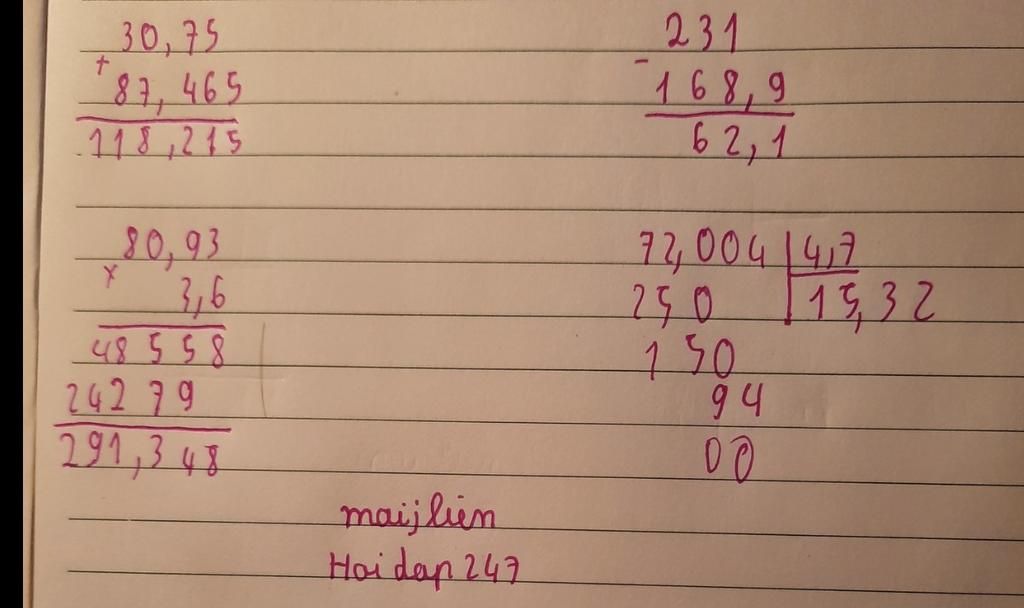 30,75
+
87,465
118,215
231
-
168,9
62,1
80,93
x
3,6
48558
24279
291,348
72,004 4,7
250 15,32
150
94
00
maijliên
Hoi dap 247